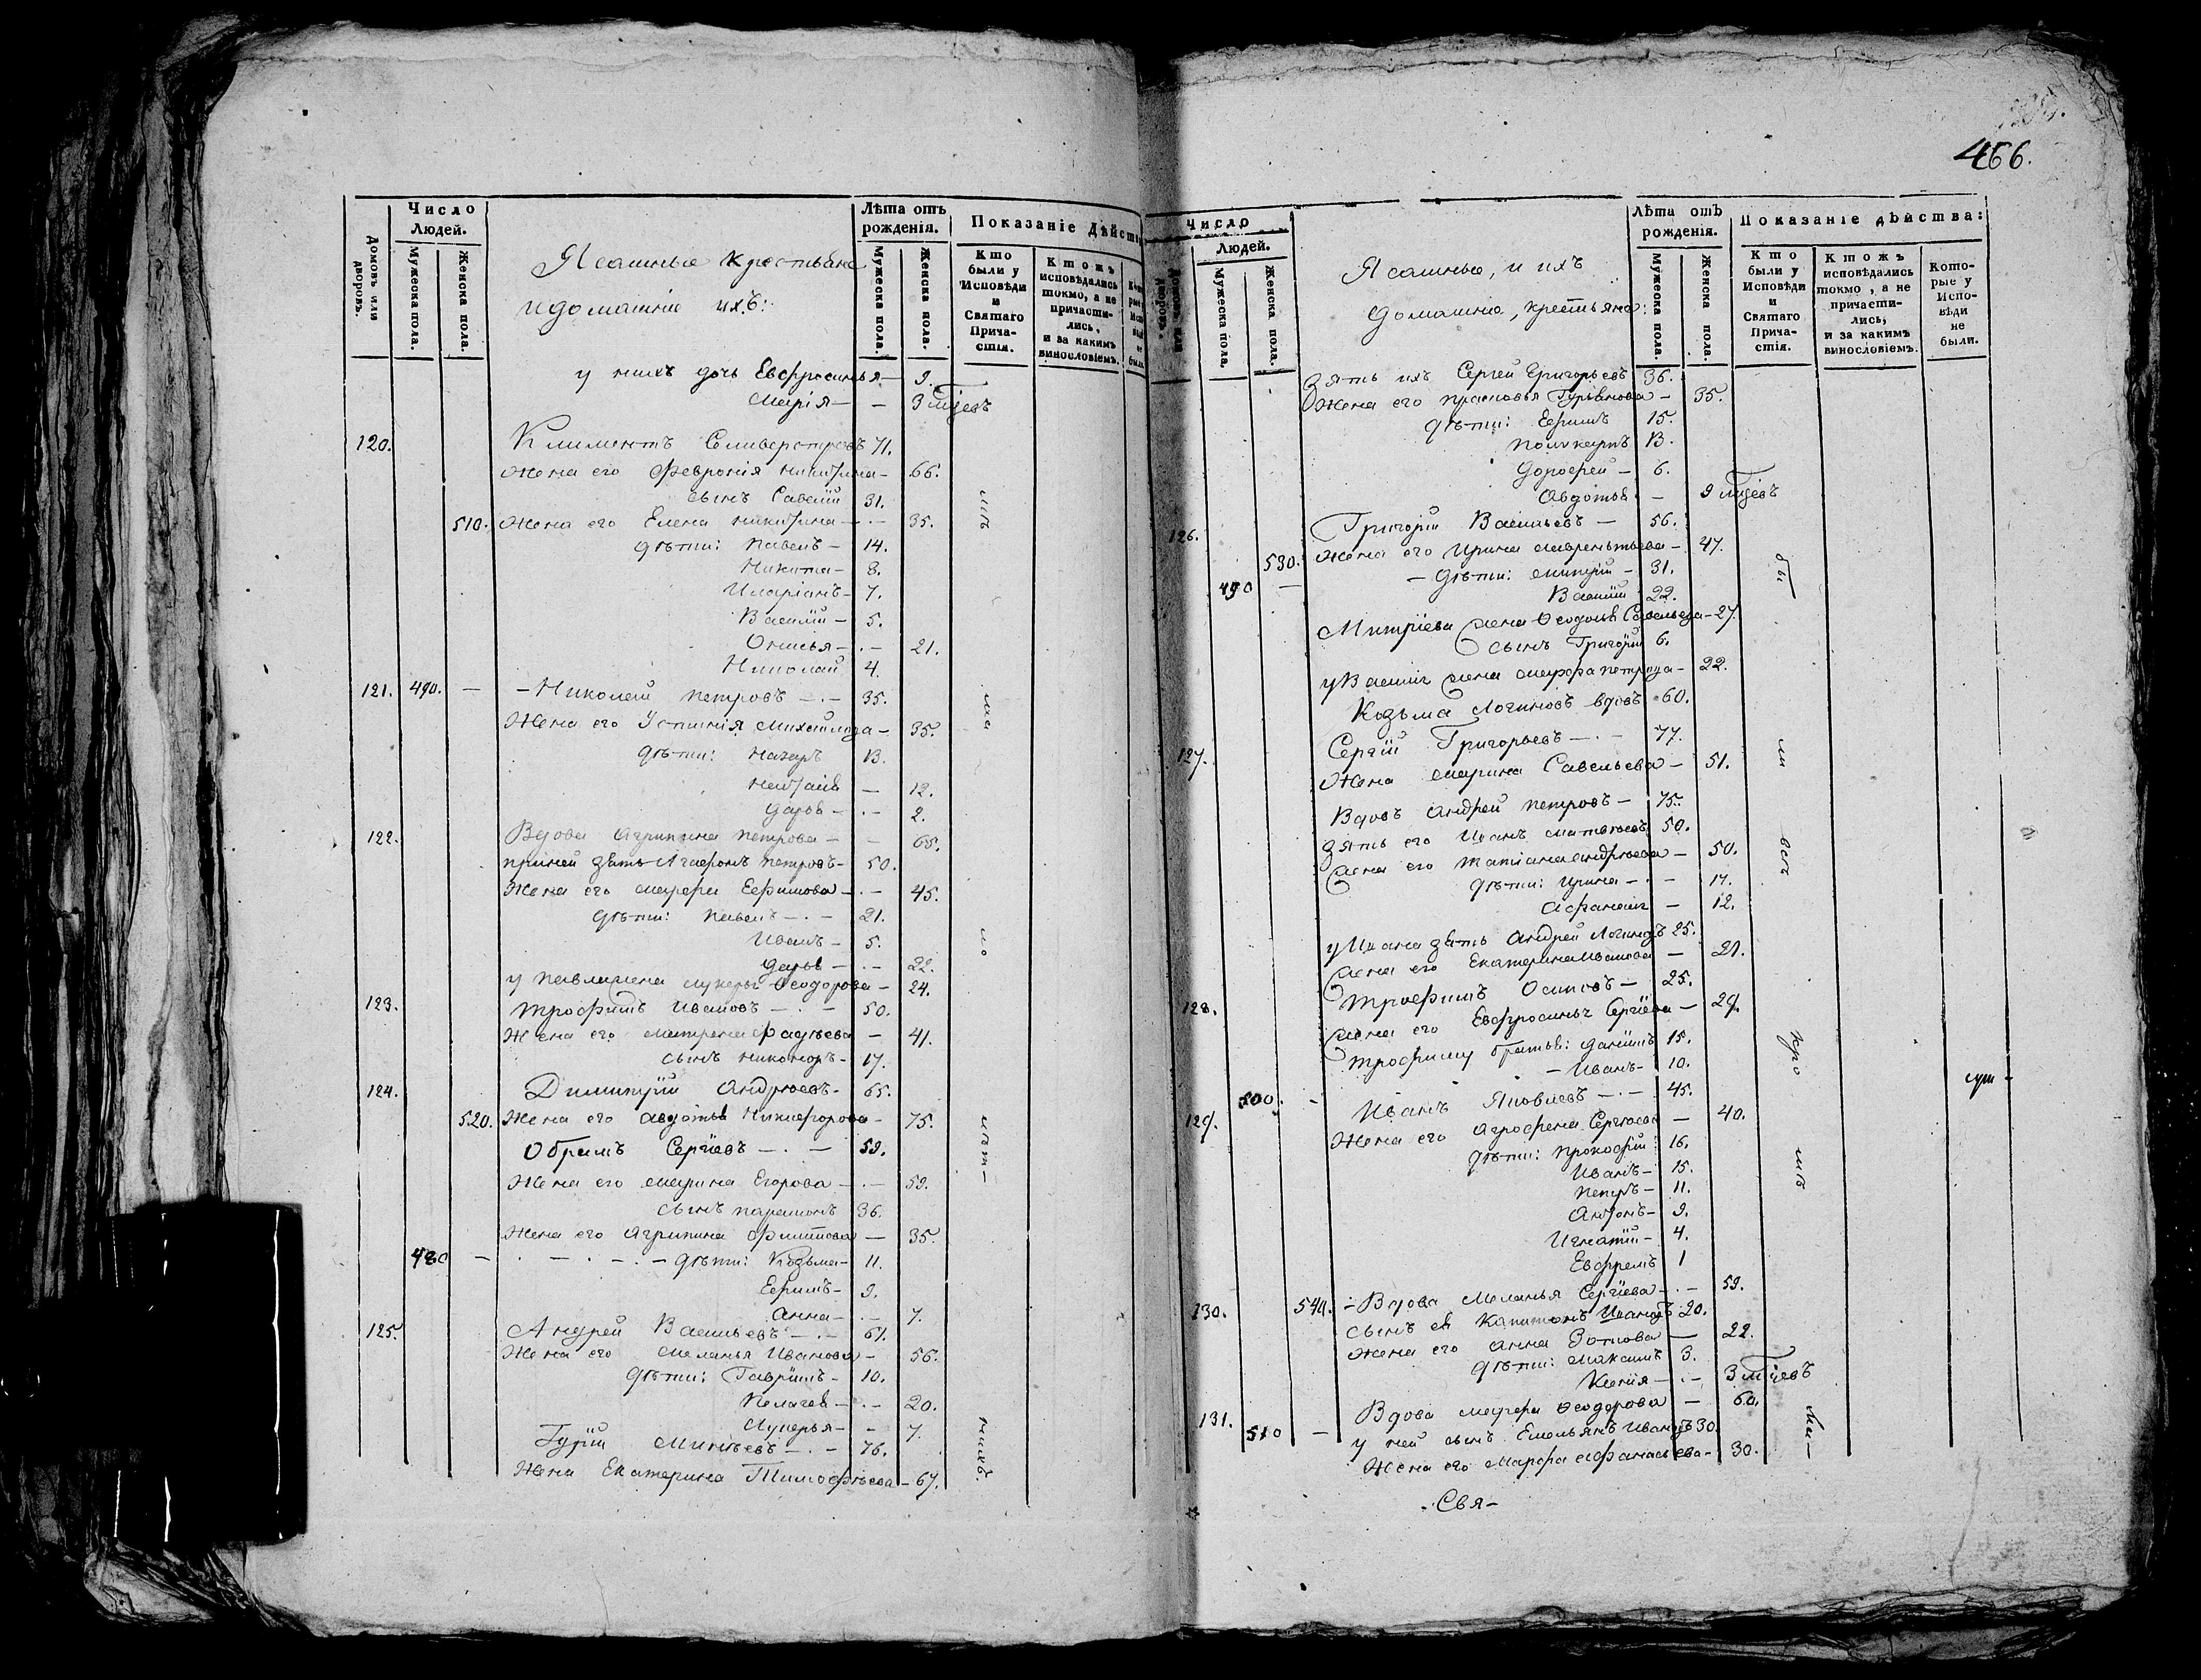 466.
Домовъ или дворовъ.
Число Людей.
Мужеска пола.
Женска пола.
Ясашные крестьяне
и домашніе ихъ:
Лѣта отъ рожденія.
Мужеска пола.
Женска пола.
Показаніе Дѣйств
Кто были у Исповѣди и Святаго Причастія.
Ктожъ исповѣдались токмо, а не причастились, и за какимъ винословіемъ.
у нихъ дочь Евфросинья — 9.
Марія — — 3 мцевъ
120. Климентъ Селиверстровъ 71.
Жена его Феврония Никитина — 66.
сынъ Савелій 31.
510. Жена его Елена Никитина — 35.
дѣти: Павелъ — 14.
Никита — 8.
Иларіанъ — 7.
Василій — 5.
Онисья — 21.
Николай 4.
121. 490. — Николай Петровъ — 35.
Жена его Устинія Михайлова — 35.
дѣти: Назаръ 13.
— 12.
Дарья — 2.
122. Вдова Агрипина Петрова — 65.
при ней зять Агафонъ Петровъ — 50.
Жена его Марфа Ефимова — 45.
дѣти: Павелъ — 21.
Иванъ — 5.
Дарья — 22.
у Павла жена Лукерья Ѳеодорова — 24.
123. Трофимъ Ивановъ — 50.
Жена его Матрена Фадѣева — 41.
сынъ Никоноръ — 17.
124. Димитрій Андреевъ — 65.
520. Жена его Авдотья Никифорова — 75.
Обрамъ Сергіевъ — 59.
Жена его Марина Егорова — 59.
сынъ Парамонъ 36.
Жена его Агрипина Филипова — 35.
480 — дѣти: Козьма — 11.
Ефимъ — 9.
Анна — 7.
125. Андрей Васильевъ — 61.
Жена его Меланья Иванова — 56.
дѣти: Гаврилъ — 10.
Пелагея — 20.
Лукерья — 7.
Гурій — 76.
Жена Екатерина Тимофѣева — 67.
Число Людей.
Мужеска пола.
Женска пола.
Ясашные, и ихъ
домашніе, крестьяне:
Лѣта отъ рожденія.
Мужеска пола.
Женска пола.
Показаніе дѣйства:
Кто были у Исповѣди и Святаго Причастія.
Ктожъ исповѣдались токмо, а не причастились, и за какимъ винословіемъ.
Которые у Исповѣди не были.
Зять ихъ Сергей Григорьевъ 36.
Жена его Прасковья Гурьянова — 35.
дѣти: Ефимъ 15.
Поликарпъ 13.
Дорофей — 6.
Авдотья — 9 мцевъ
126. Григорій Васильевъ — 56.
530. Жена его Ирина Лаврентьева — 47.
490 — дѣти: Митрій — 31.
Василій 22.
Митріева жена Ѳеодосья Савельева — 27.
сынъ Григорій 6.
у Василія жена Марфа Петрова — 22.
Козьма Логиновъ вдовъ 60.
127. Сергій Григорьевъ — 77.
Жена Марина Савельева — 51.
Вдовъ Андрей Петровъ — 75.
зять его Иванъ Матвѣевъ 50.
жена его Татіана Андреева — 50.
дѣти: Ирина — 17.
Афанасія — 12.
у Ивана зять Андрей Логиновъ 25.
жена его Екатерина Иванова — 21.
128. Трофимъ Осиповъ — 25.
жена его Евфросинья Сергіева — 29.
Трофиму братья: Даніилъ 15.
500. — Иванъ — 10.
129. Иванъ Яковлевъ — 45.
Жена его Агрофена Сергѣева — 40.
дѣти: Прокофій 16.
Иванъ — 15.
Петръ — 11.
Антонъ — 9.
Игнатій — 4.
Евфремъ 1
130. 540. — Вдова Меланья Сергіева — 59.
сынъ ея Капитонъ Ивановъ 20.
Жена его Анна Зотова — 22.
дѣти: Максимъ 3.
Ксенія — 3 мцевъ
131. Вдова Марфа Ѳеодорова — 60.
510 — у ней сынъ Емельянъ Ивановъ 30.
Жена его Марфа Афанасьева — 30.
Свя-